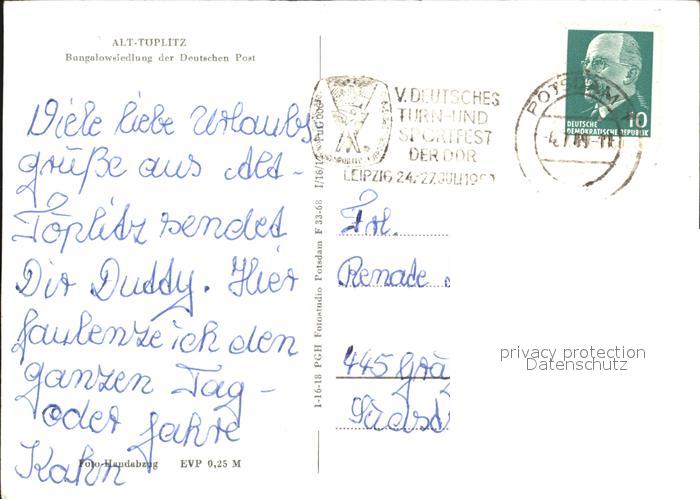 ALT-TÖPLITZ
Bungalowsiedlung der Deutschen Post
Viele liebe Urlaubs
grüße aus Alt-
Töplitz sendet
Dir Duddy. Hier
faulenze ich den
ganzen Tag -
oder fahre
Kahn
Foto-Handabzug EVP 0,25 M
1-16-18 PGH Fotostudio Potsdam F 33-68
V. DEUTSCHES
TURN-UND
SPORTFEST
DER DDR
LEIPZIG 24.-27. JULI
POTSDAM
DEUTSCHE
DEMOKRATISCHE REPUBLIK
10
Frl.
Renade
445 Grä
privacy protection
Datenschutz